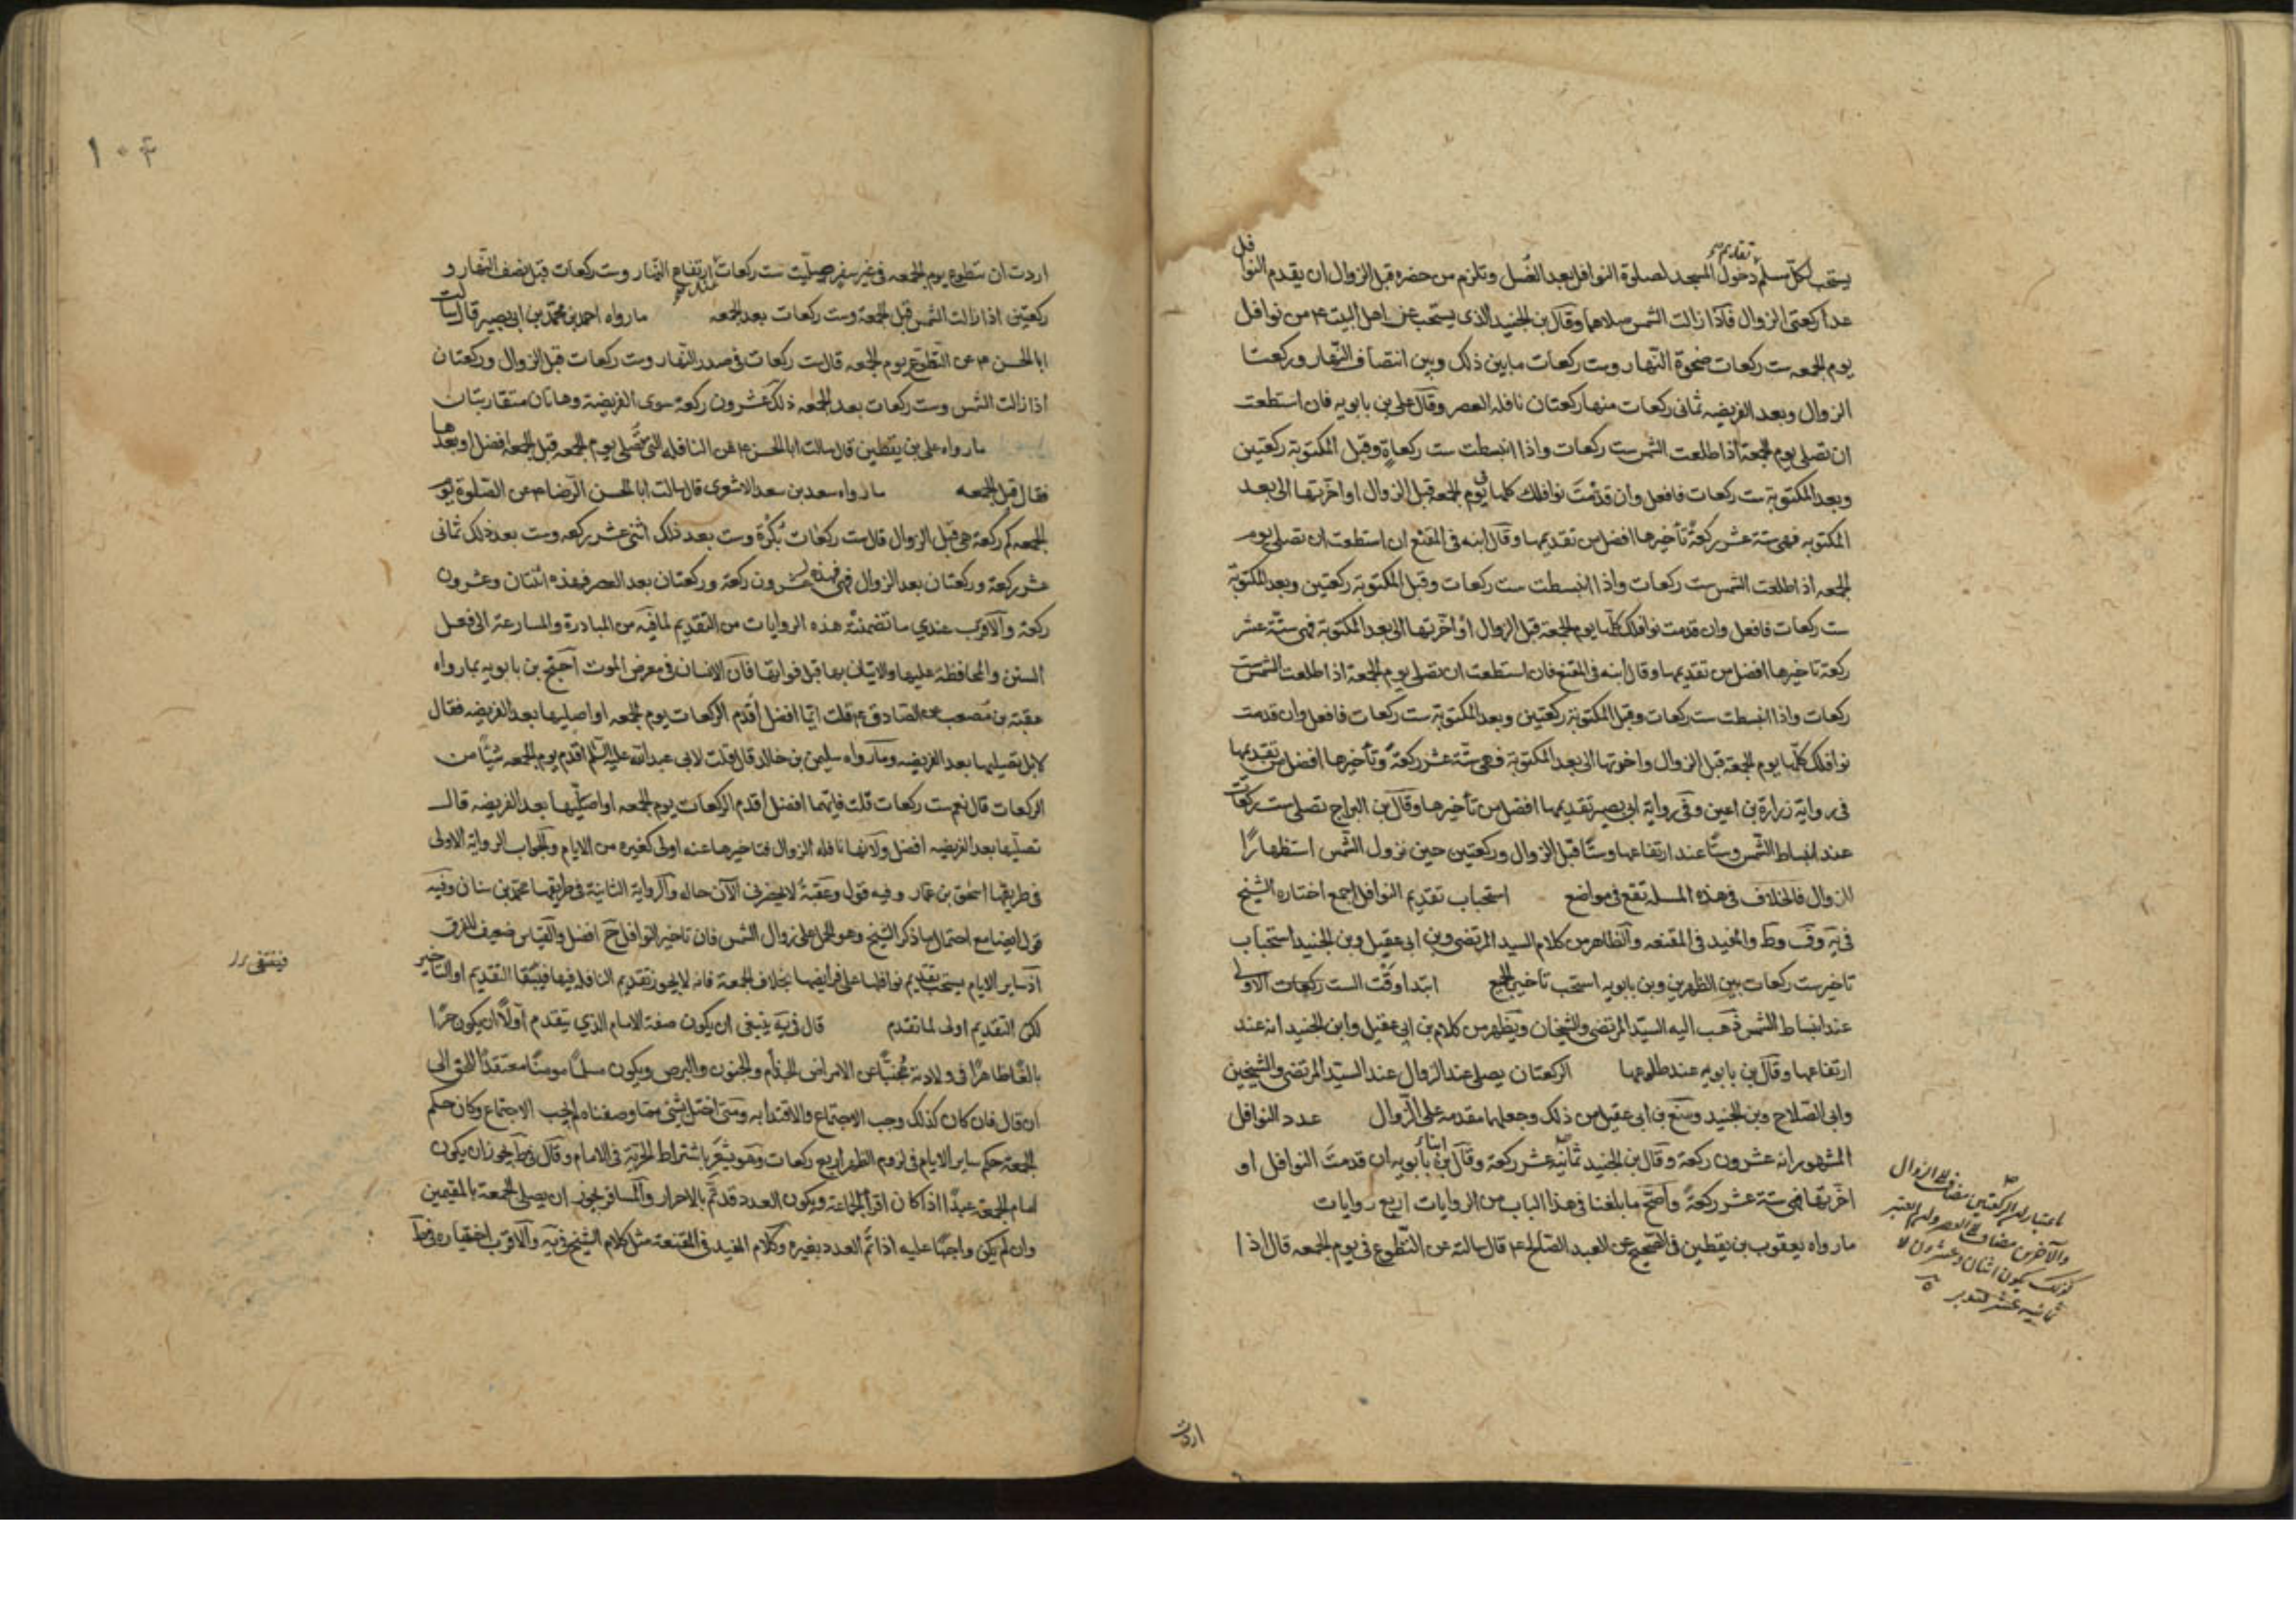 تقديم
يستحب لكل مسلم دخول المسجد لصلوة النوافل بعد الغسل وتلزم من حضره قبل الزوال ان يقدم النوافل
عدا ركعتى الزوال فاذا زالت الشمس صلاهما وقال بن الجنيد الذى يستحب عن اهل البيت ع من نوافل
يوم الجمعه ست ركعات ضحوة النهار وست ركعات مابين ذلك وبين انتصاف النهار وركعتا
الزوال وبعد الفريضه ثمانى ركعات منها ركعتان نافله العصر وقال على بن بابويه فان استطعت
ان تصلى يوم الجمعة اذا طلعت الشمس ست ركعات واذا انبسطت ست ركعاة وقبل المكتوبة ركعتين
وبعد المكتوبة ست ركعات فافعل وان قدمت نوافلك كلها فى يوم الجمعه قبل الزوال او اخرتها الى بعد
المكتوبه فهى ستة عشر ركعة تأخيرها افضل من تقديمها وقال ابنه فى المقنع ان استطعت ان تصلى يوم
الجمعه اذ اطلعت الشمس ست ركعات واذا انبسطت ست ركعات وقبل المكتوبة ركعتين وبعد المكتوبة
ست ركعات فافعل وان قدمت نوافلك كلها يوم الجمعة قبل الزوال او اخرتها الى بعد المكتوبة فهى ستة عشر
ركعة تاخيرها افضل من تقديمها وقال ابنه فى المقنع فان استطعت ان تصلى يوم الجمعة اذ اطلعت الشمس ست
ركعات واذا انبسطت ست ركعات وقبل المكتوبة ركعتين وبعد المكتوبة ست ركعات فافعل وان قدمت
نوافلك كلها يوم الجمعة قبل الزوال واخرتها الى بعد المكتوبة فهى ستة عشر ركعة وتأخيرها افضل من تقديمها
فى رواية زرارة بن اعين وفى رواية ابى بصير تقديمها افضل من تأخيرها وقال بن البراج تصلى ست ركعات
عند انبساط الشمس وستا عند ارتفاعها وستا قبل الزوال وركعتين حين نزول الشمس استظهارا
للزوال فالخلاف فى هذه المسله تقع فى مواضع استحباب تقديم النوافل اجمع اختاره الشيخ
فى ية وف وط والمفيد فى المقنعه والظاهر من كلام السيد المرتضى وبن ابى عقيل وبن الجنيد استحباب
تاخير ست ركعات بين الظهرين وبن بابويه استحب تاخير الجميع ابتدا وقت الست ركعات الاولى
عند انبساط الشمس ذهب اليه السيد المرتضى والشيخان ويظهر من كلام بن ابى عقيل وابن الجنيد انه عند
ارتفاعها وقال بن بابويه عند طلوعها الركعتان يصلى عند الزوال عند السيد المرتضى والشيخين
وابى الصلاح وبن الجنيد ومنع بن ابى عقيل من ذلك وجعلها مقدمة على الزوال عدد النوافل
المشهور انه عشرون ركعة وقال بن الجنيد ثمانية عشر ركعة وقال ابنا بابويه ان قدمت النوافل او
اخرتها فهى ستة عشر ركعة واصح مابلغنا فى هذا الباب من الروايات اربع روايات
مارواه يعقوب بن يقطين فى الصحيح عن العبد الصالح ع قال سالته عن التطوع فى يوم الجمعه قال اذا
والآخرين مضاف الى العصر
يكون اثنان وعشرون لا
ثمانية عشر فتدبر
اردت
١٠٤
اردت ان تتطوع يوم الجمعه فى غير سفر صليت ست ركعات ارتفاع النهار وست ركعات قبل نصف النهار و
عند
ركعتين اذا زالت الشمس قبل الجمعة وست ركعات بعد الجمعه مارواه احمد بن محمد بن ابى بصير قال سالت
ابا الحسن ع عن التطوع يوم الجمعه قال ست ركعات فى صدر النهار وست ركعات قبل الزوال وركعتان
اذا زالت الشمس وست ركعات بعد الجمعه ذلك عشرون ركعة سوى الفريضة وهاتان متقاربتان
مارواه على بن يقطين قال سالت ابا الحسن ع عن النافله التى تصلى يوم الجمعه قبل الجمعة افضل او بعدها
فقال قبل الجمعه مارواه سعد بن سعد الاشعرى قال سالت ابا الحسن الرضا ع عن الصلوة يوم
الجمعه كم ركعة هى قبل الزوال قال ست ركعات بكرة وست بعد ذلك اثنى عشر ركعه وست بعد ذلك ثمانى
عشر ركعة وركعتان بعد الزوال فهذه عشرون ركعة وركعتان بعد العصر فهذه اثنتان وعشرون
ركعة والاقرب عندي ما تضمنته هذه الروايات من التقديم لما فيه من المبادرة والمسارعة الى فعل
السنن والمحافظة عليها والاتيان بها قبل فواتها فان الانسان فى معرض الموت احتج بن بابويه بما رواه
عقبة بن مصعب عن الصادق ع قلت ايما افضل أقدم الركعات يوم الجمعه او اصليها بعد الفريضه فقال
لا بل تصليها بعد الفريضه ومارواه سليمن بن خالد قال قلت لابى عبد الله عليه السلم اقدم يوم الجمعه شيئا من
الركعات قال نعم ست ركعات قلت فايهما افضل أقدم الركعات يوم الجمعه او اصليها بعد الفريضه قال
تصليها بعد الفريضه افضل ولانها نافله الزوال فتاخيرها عنه اولى كغيره من الايام والجواب الرواية الاولى
فى طريقها اسحق بن عمار وفيه قول وعقبة لا يحضرنى الآن حاله والرواية الثانية فى طريقها محمد بن سنان وفيه
قول ايضا مع احتمال ما ذكر الشيخ وهو الحمل على زوال الشمس فان تاخير النوافل ح افضل والقياس ضعيف للفرق
اذ ساير الايام يستحب تقديم نوافلها على فرايضها بخلاف الجمعة فانه لا يجوز تقديم النافله فيها فيبقا التقديم او التاخير
لكن التقديم اولى لما تقدم قال فى ية ينبغى ان يكون صفة الامام الذي يتقدم اولا ان يكون حرا
بالغا طاهرا فى ولادته مجنبا من الامراض الجذام والجنون والبرص ويكون مسلما مومنا معتقدا للحق الى
ان قال فان كان كذلك وجب الاجتماع والاقتدا به ومتى اختل شئ مما وصفناه لم يجب الاجتماع وكان حكم
الجمعة حكم ساير الايام فى لزوم الظهر اربع ركعات وهو يشعر باشتراط الحرية فى الامام وقال فى ط يجوز ان يكون
امام الجمعة عبدا اذا كان اقرأ الجماعة ويكون العدد قد تم بالاحرار والمسافر يجوز ان يصلى الجمعة بالمقيمين
وان لم يكن واجبا عليه اذا تم العدد بغيره وكلام المفيد فى المقنعة مثل كلام الشيخ فى ية والاقرب اختياره فى ط